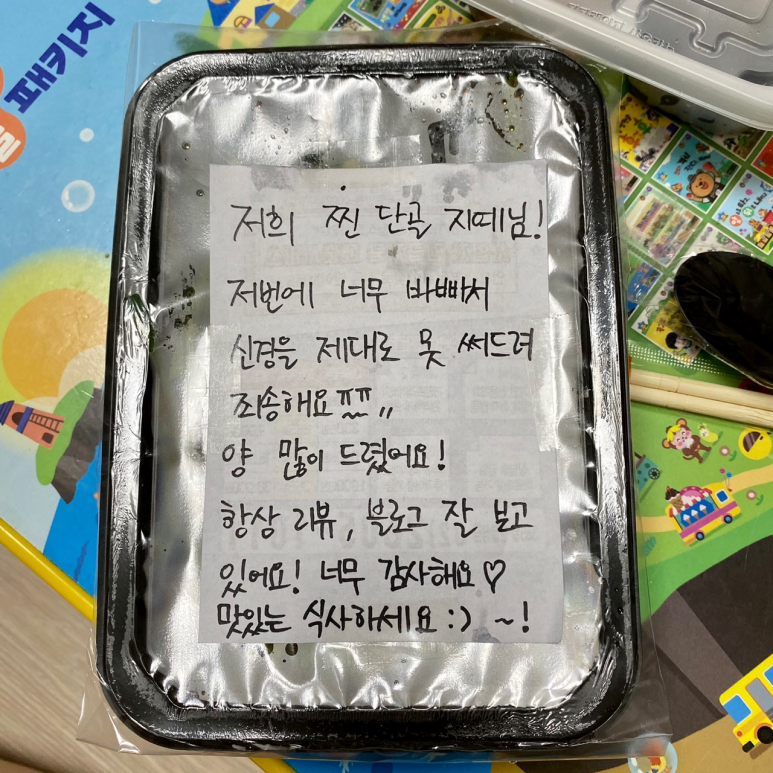 패키지
저희 찐 단골 지떼님!
저번에 너무 바빠서
신경을 제대로 못 써드려
죄송해요ㅠㅠ,,
양 많이 드렸어요!
항상 리뷰, 블로그 잘 보고
있어요! 너무 감사해요♡
맛있는 식사하세요 :) ~!